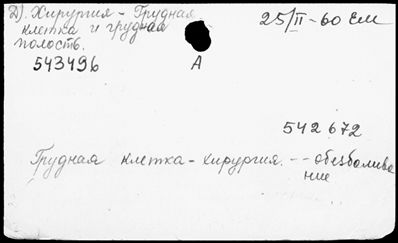 2). Хирургия - Грудная
клетка и грудная
полость.
25/II-60 ЕМ
543496
А
542672
Грудная клетка - хирургия. -- обезболива
ние